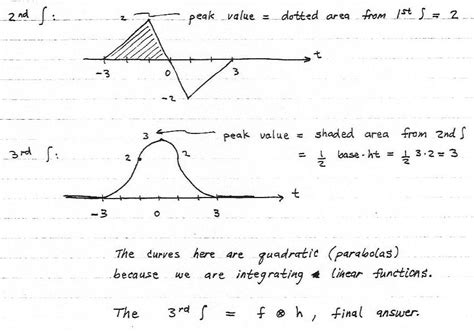 2nd ∫:
2 peak value = dotted area from 1st ∫ = 2
t
-3 0 3
-2
3 peak value = shaded area from 2nd ∫
3rd ∫: 2 2 = 1/2 base·ht = 1/2 3·2 = 3
t
-3 0 3
The curves here are quadratic (parabolas)
because we are integrating linear functions.
The 3rd ∫ = f ⊗ h, final answer.